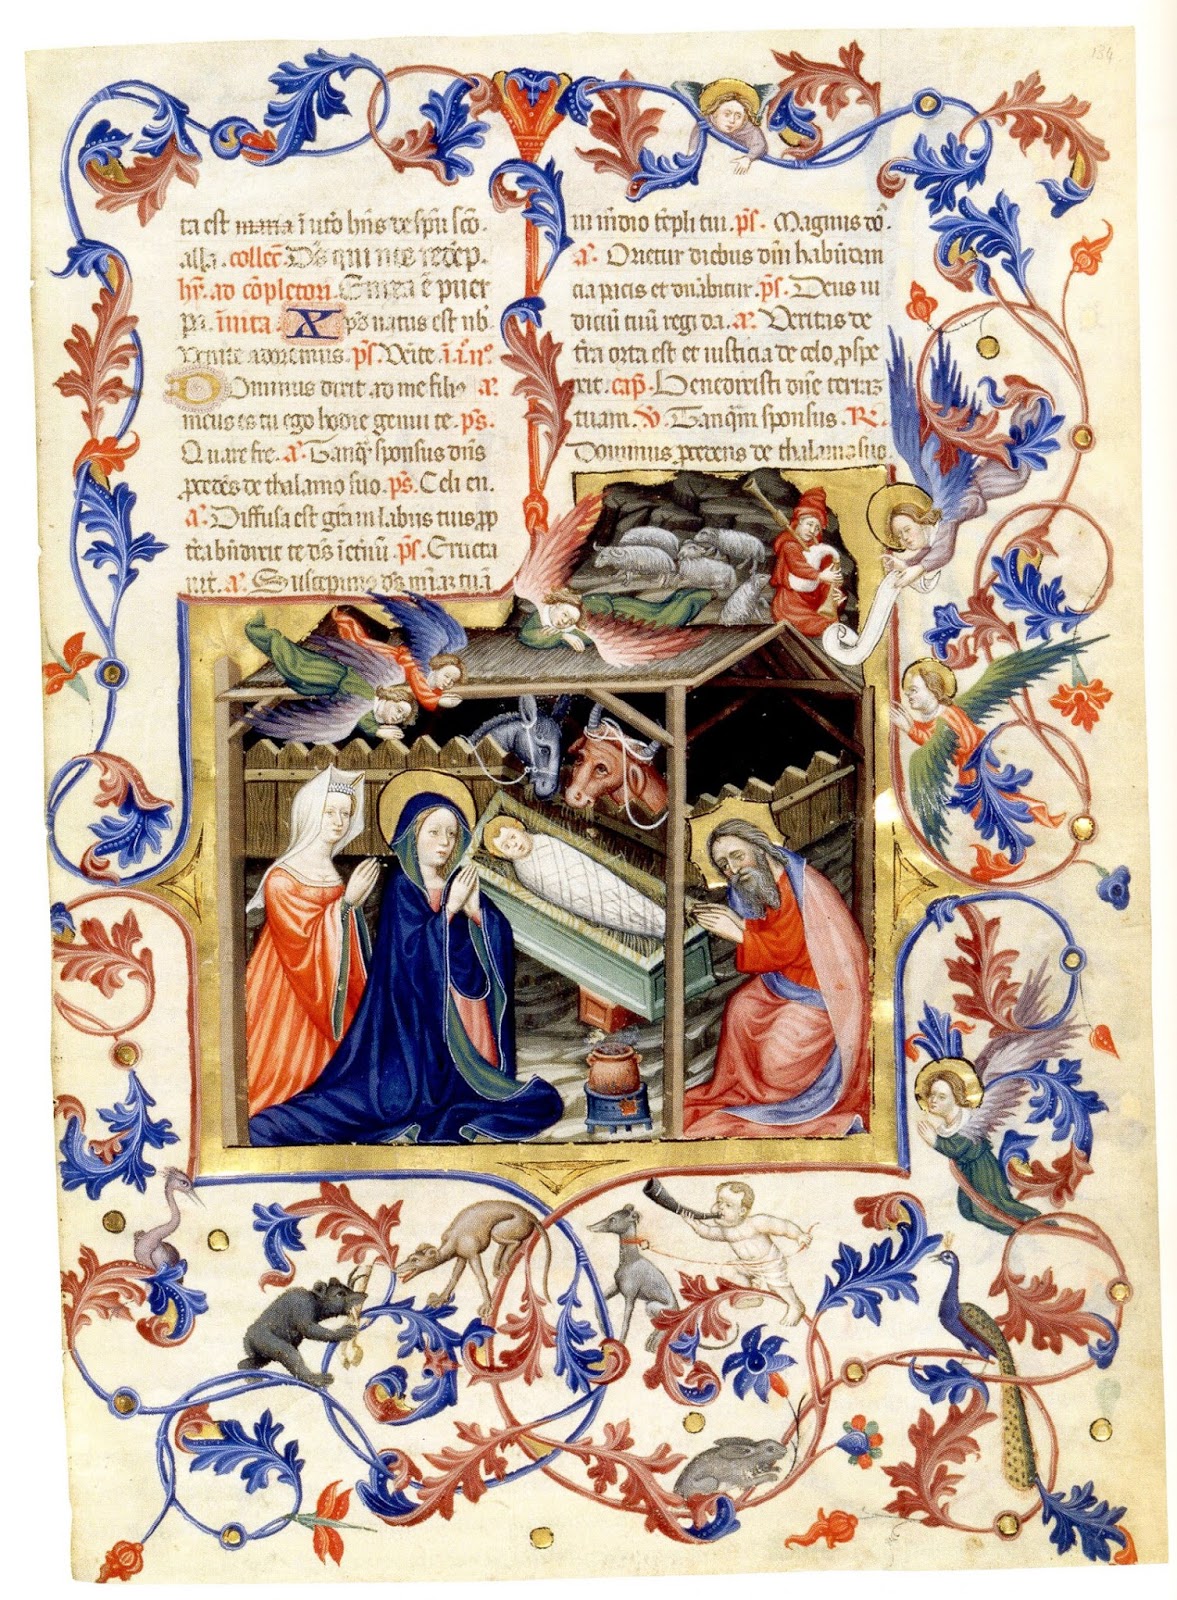 134
ta est maria ī uto hn̄s de spū sc̄o.
all'a. collec̄. Ds̄ qui nos redēp.
ad cōpletori. ē puer
īnita. X p̄s natus est nb̄.
Venite adoremus. p̄s. Vēite
Dominus dixit ad me filiꝰ a.
meus es tu ego hodie genui te. p̄s.
Quare fre. a. Tanq̄ sponsus dn̄s
p̄cedēs de thalamo suo. p̄s. Celi en.
a. Diffusa est gr̄a in labijs tuis p̄p
t̄ea bn̄dixit te ds̄ ī et̄nū p̄s. Eructa
uit. a. Suscepimꝰ ds̄ mīaz tuā
in m̄dio tēpli tui. p̄s. Magnus dō.
a. Orietur diebus dn̄i habūdan
cia pacis et dn̄abitur. p̄s. Deus iu
diciū tuū regi da. a. Veritas de
t̄ra orta est et iusticia de celo p̄spe
xit. cap̄. Benedixisti dn̄e terraz
tuam. V. Tanq̄m sponsus. R.
Dominus p̄cedens de thalamo suo.